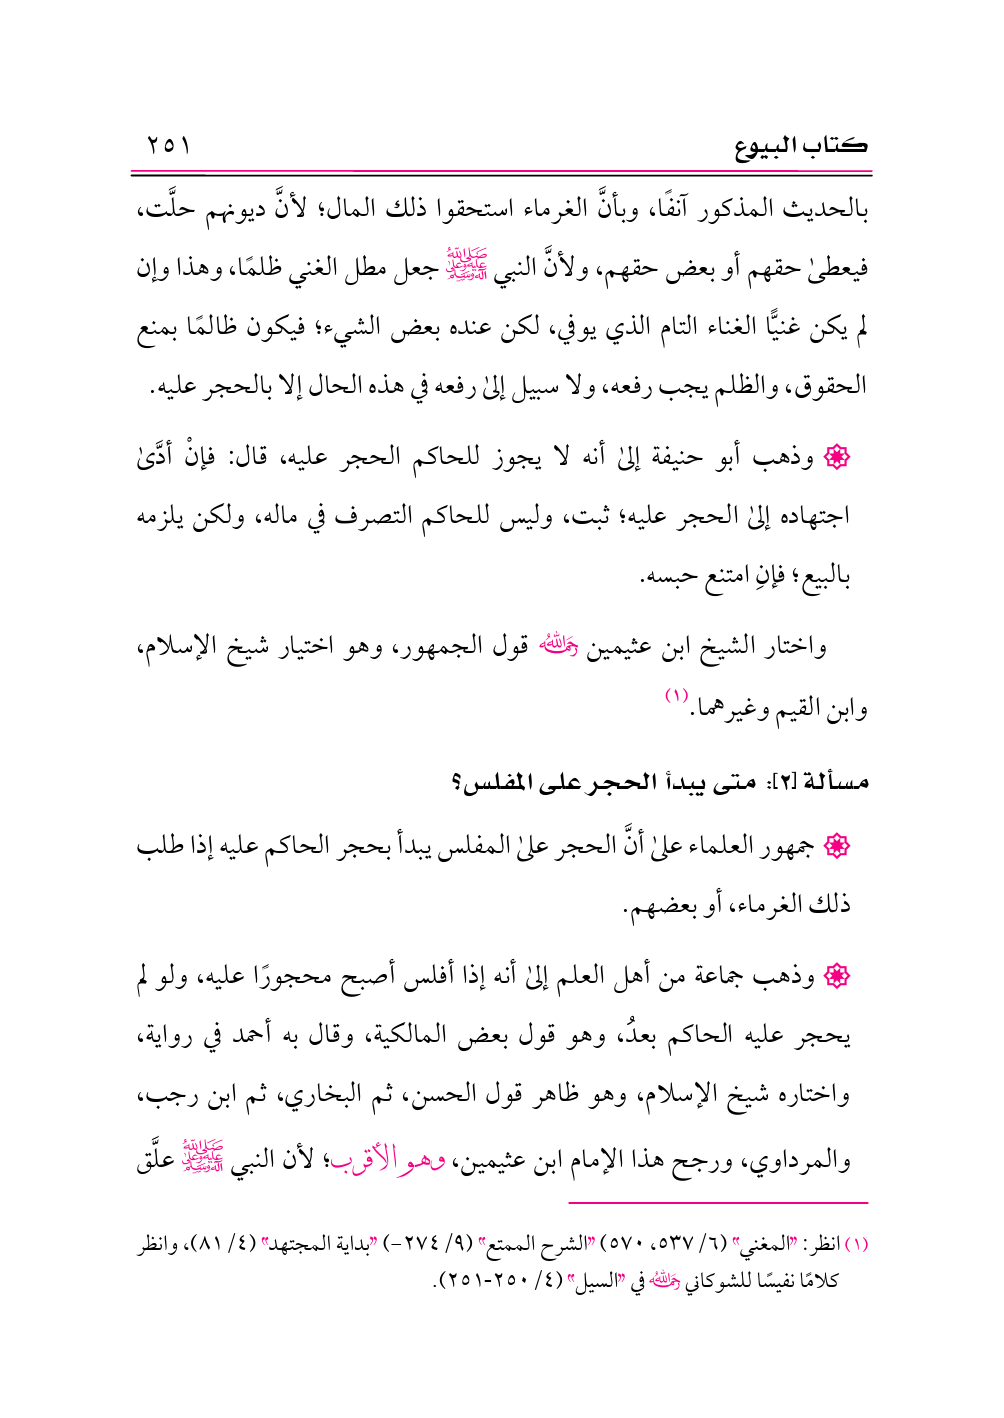 كتاب البيوع ٢٥١
بالحديث المذكور آنفًا، وبأنَّ الغرماء استحقوا ذلك المال؛ لأنَّ ديونهم حلَّت،
فيعطىٰ حقهم أو بعض حقهم، ولأنَّ النبي ﷺ جعل مطل الغني ظلمًا، وهذا وإن
لم يكن غنيًّا الغناء التام الذي يوفي، لكن عنده بعض الشيء؛ فيكون ظالمًا بمنع
الحقوق، والظلم يجب رفعه، ولا سبيل إلىٰ رفعه في هذه الحال إلا بالحجر عليه.
وذهب أبو حنيفة إلىٰ أنه لا يجوز للحاكم الحجر عليه، قال: فإنْ أدَّىٰ
اجتهاده إلىٰ الحجر عليه؛ ثبت، وليس للحاكم التصرف في ماله، ولكن يلزمه
بالبيع؛ فإنِ امتنع حبسه.
واختار الشيخ ابن عثيمين رحمه الله قول الجمهور، وهو اختيار شيخ الإسلام،
وابن القيم وغيرهما.(١)
مسألة [٢]: متى يبدأ الحجر على المفلس؟
جمهور العلماء علىٰ أنَّ الحجر علىٰ المفلس يبدأ بحجر الحاكم عليه إذا طلب
ذلك الغرماء، أو بعضهم.
وذهب جماعة من أهل العلم إلىٰ أنه إذا أفلس أصبح محجورًا عليه، ولو لم
يحجر عليه الحاكم بعدُ، وهو قول بعض المالكية، وقال به أحمد في رواية،
واختاره شيخ الإسلام، وهو ظاهر قول الحسن، ثم البخاري، ثم ابن رجب،
والمرداوي، ورجح هذا الإمام ابن عثيمين، وهو الأقرب؛ لأن النبي ﷺ علَّق
(١) انظر: "المغني" (٦/ ٥٣٧، ٥٧٠) "الشرح الممتع" (٩/ ٢٧٤-) "بداية المجتهد" (٤/ ٨١)، وانظر
كلامًا نفيسًا للشوكاني رحمه الله في "السيل" (٤/ ٢٥٠-٢٥١).